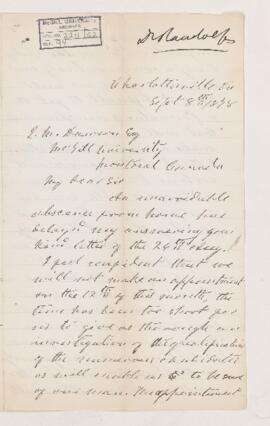 McGILL UNIVERSITY
ARCHIVES
ACC. NO.
REF.
Dr Randolph
Charlottesville Va
Sept 8th 1858
J. W. Dawson Esq
McGill University
Montreal Canada
My dear Sir
An unavoidable
absence from home has
delayed my answering your
kind letter of the 24th
I feel confident that we
will not make an appointment
on the 12th of this month, the
time has been too short for
us to give as thorough an
investigation of the qualifications
of the numerous candidates
as will enable us to be sure
of our man. The appointment